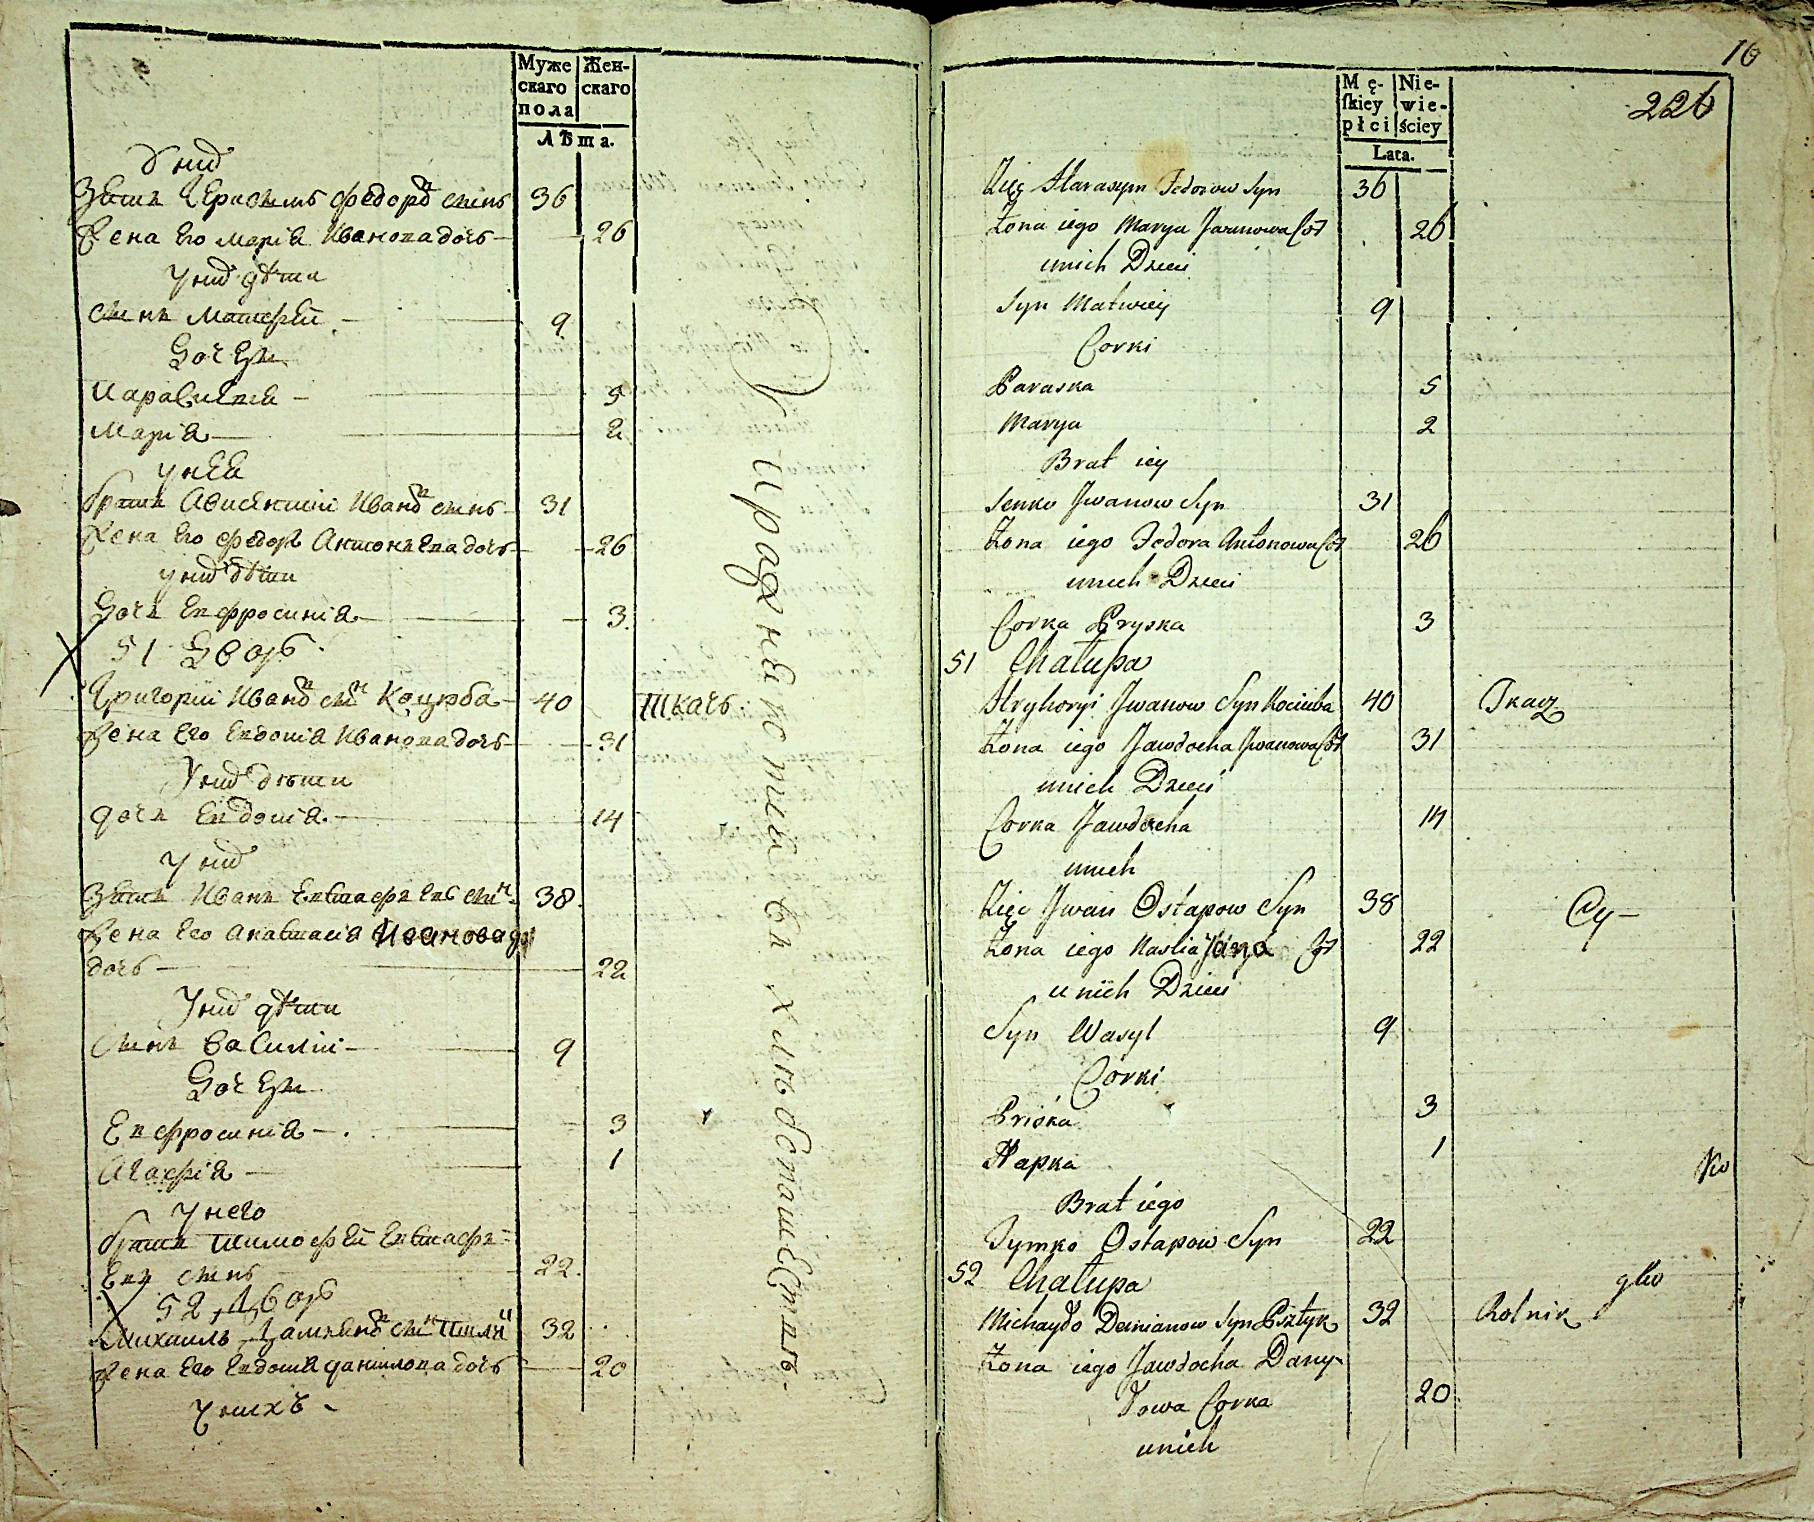 Муже
скаго
пола
Жен-
скаго
Лѣта.
у них
Зять Герасимъ Федоровъ сынъ 36
Жена Его Марїя Иванова дочь 26
у них дѣти
сынъ Матфей 9
Дочери
Параскевїя 5
Марїя 2
у нея
братъ Авксентий Иванов сынъ 31
Жена Его Федора Антоньева дочь 26
у них дѣти
Дочь Евфросинїя 3
51 Дворъ
Григорий Иванов сын Коцюба 40 Ткачъ
Жена Его Евдокїя Иванова дочь 31
У них дѣти
дочь Евдокїя 14
у них
Зять Иванъ Евстафьевъ сын 38
Жена Его Анастасїя Иванова до
дочь 22
У них дѣти
Сынъ Василий 9
Дочери
Евфросинїя 3
Агафїя 1
у него
братъ Тимофей Евстафь-
евъ сынъ 22
52 Дворъ
Михаилъ Дамиянов сын 32
Жена Его Евдокїя Данилова дочь 20
У нихъ
10
226
Mę-
ſkiey
płci
Nie-
wie-
ściey
Lata.
Zięć Harasym Fedorow Syn 36
Żona iego Marya Jwanowa Cór 26
unich Dzieci
Syn Matwiey 9
Corki
Paraska 5
Marya 2
Brat iey
Senko Jwanow Syn 31
Żona iego Fedora Antonowa Cór 26
unich Dzieci
Corka Pryska 3
51 Chałupa
Hryhoryi Jwanow Syn Kociuba 40 Tkacz
Żona iego Jawdocha Jwanowa Cór 31
unich Dzieci
Corka Jawdocha 14
unich
Zięć Jwan Ostapow Syn 38
Cy-
Żona iego Nastia Cór 22
u nich Dzieci
Syn Wasyl 9
Córki
Priśka 3
Hapka 1
Brat iego
Tymko Ostapow Syn 22
52 Chałupa
Michayło Demianow Syn Psztyk 32 Rolnik
Żona iego Jawdocha Dany-
łowa Corka 20
unich